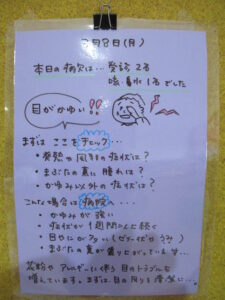 3月8日(月)
本日の病欠は… 発診 2名
咳・鼻水 1名でした
目がかゆい!!
まずは ここを チェック…
• 発熱や 風邪の症状は?
• まぶたの裏に 腫れは?
• かゆみ以外の 症状は?
こんな場合は 病院へ…
• かゆみが 強い
• 症状が 1週間 続く
• 目やにが多い
• まぶたの裏が
花粉や アレルギーに伴う 目のトラブルも
増えています。まずは 目の周りを 清潔に…